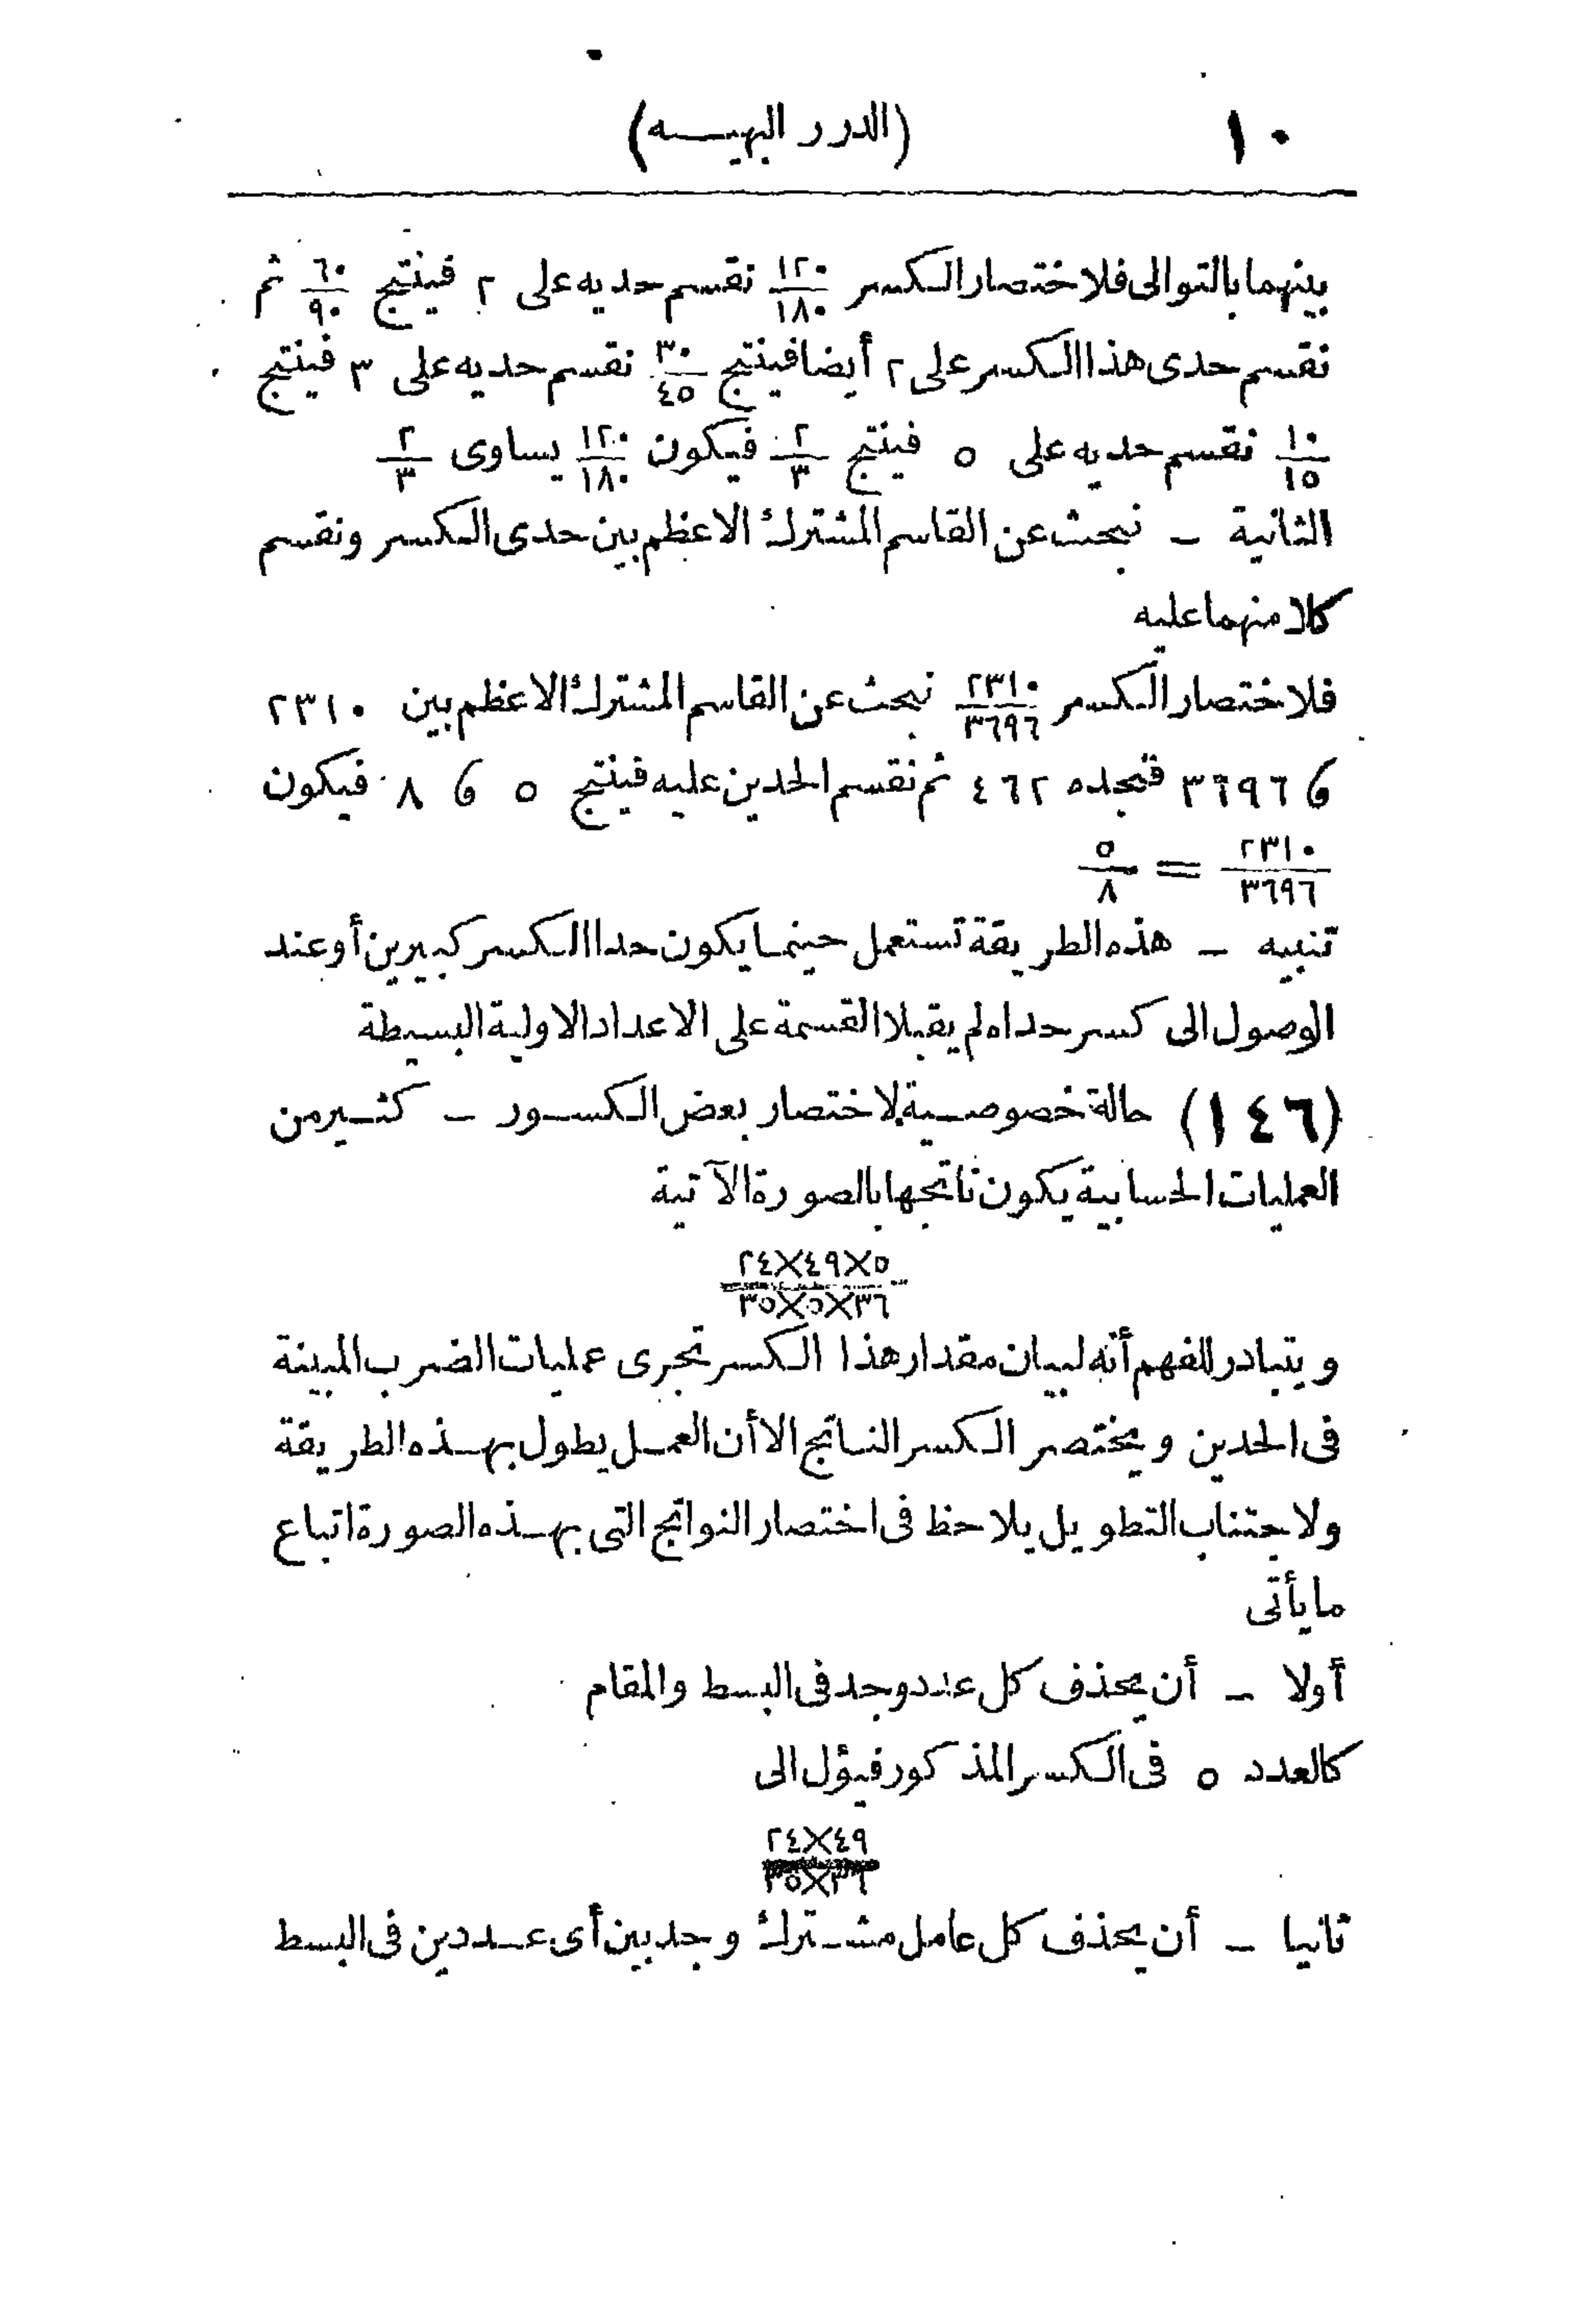 ١٠ (الدرر البهيه)
بينهما بالتوالى فلاختصار الكسر ١٢٠/١٨٠ نقسم حديه على ٢ فينتج ٦٠/٩٠ ثم
نقسم حدى هذا الكسر على ٢ أيضا فينتج ٣٠/٤٥ نقسم حديه على ٣ فينتج
١٠/١٥ نقسم حديه على ٥ فينتج ٢/٣ فيكون ١٢٠/١٨٠ يساوى ٢/٣
الثانية – نبحث عن القاسم المشترك الاعظم بين حدى الكسر ونقسم
كلا منهما عليه
فلاختصار الكسر ٢٣١٠/٣٦٩٦ نبحث عن القاسم المشترك الاعظم بين ٢٣١٠
و ٣٦٩٦ فنجده ٤٦٢ ثم نقسم الحدين عليه فينتج ٥ و ٨ فيكون
٢٣١٠/٣٦٩٦ = ٥/٨
تنبيه – هذه الطريقة تستعمل حينما يكون حدا الكسر كبيرين أو عند
الوصول الى كسر حداه لم يقبلا القسمة على الاعداد الاولية البسيطة
(١٤٦) حالة خصوصية لاختصار بعض الكسور – كثير من
العمليات الحسابية يكون ناتجها بالصورة الآتية
٢٤×٤٩×٥
٣٥×٥×٣٦
ويتبادر للفهم أنه لبيان مقدار هذا الكسر تجرى عمليات الضرب المبينة
فى الحدين ويختصر الكسر الناتج الا أن العمل يطول بهذه الطريقة
ولاجتناب التطويل يلاحظ فى اختصار النواتج التى بهذه الصورة اتباع
ما يأتى
أولا – أن يحذف كل عدد وجد فى البسط والمقام
كالعدد ٥ فى الكسر المذكور فيؤل الى
٢٤×٤٩
٣٥×٣٦
ثانيا – أن يحذف كل عامل مشترك وجد بين أى عددين فى البسط